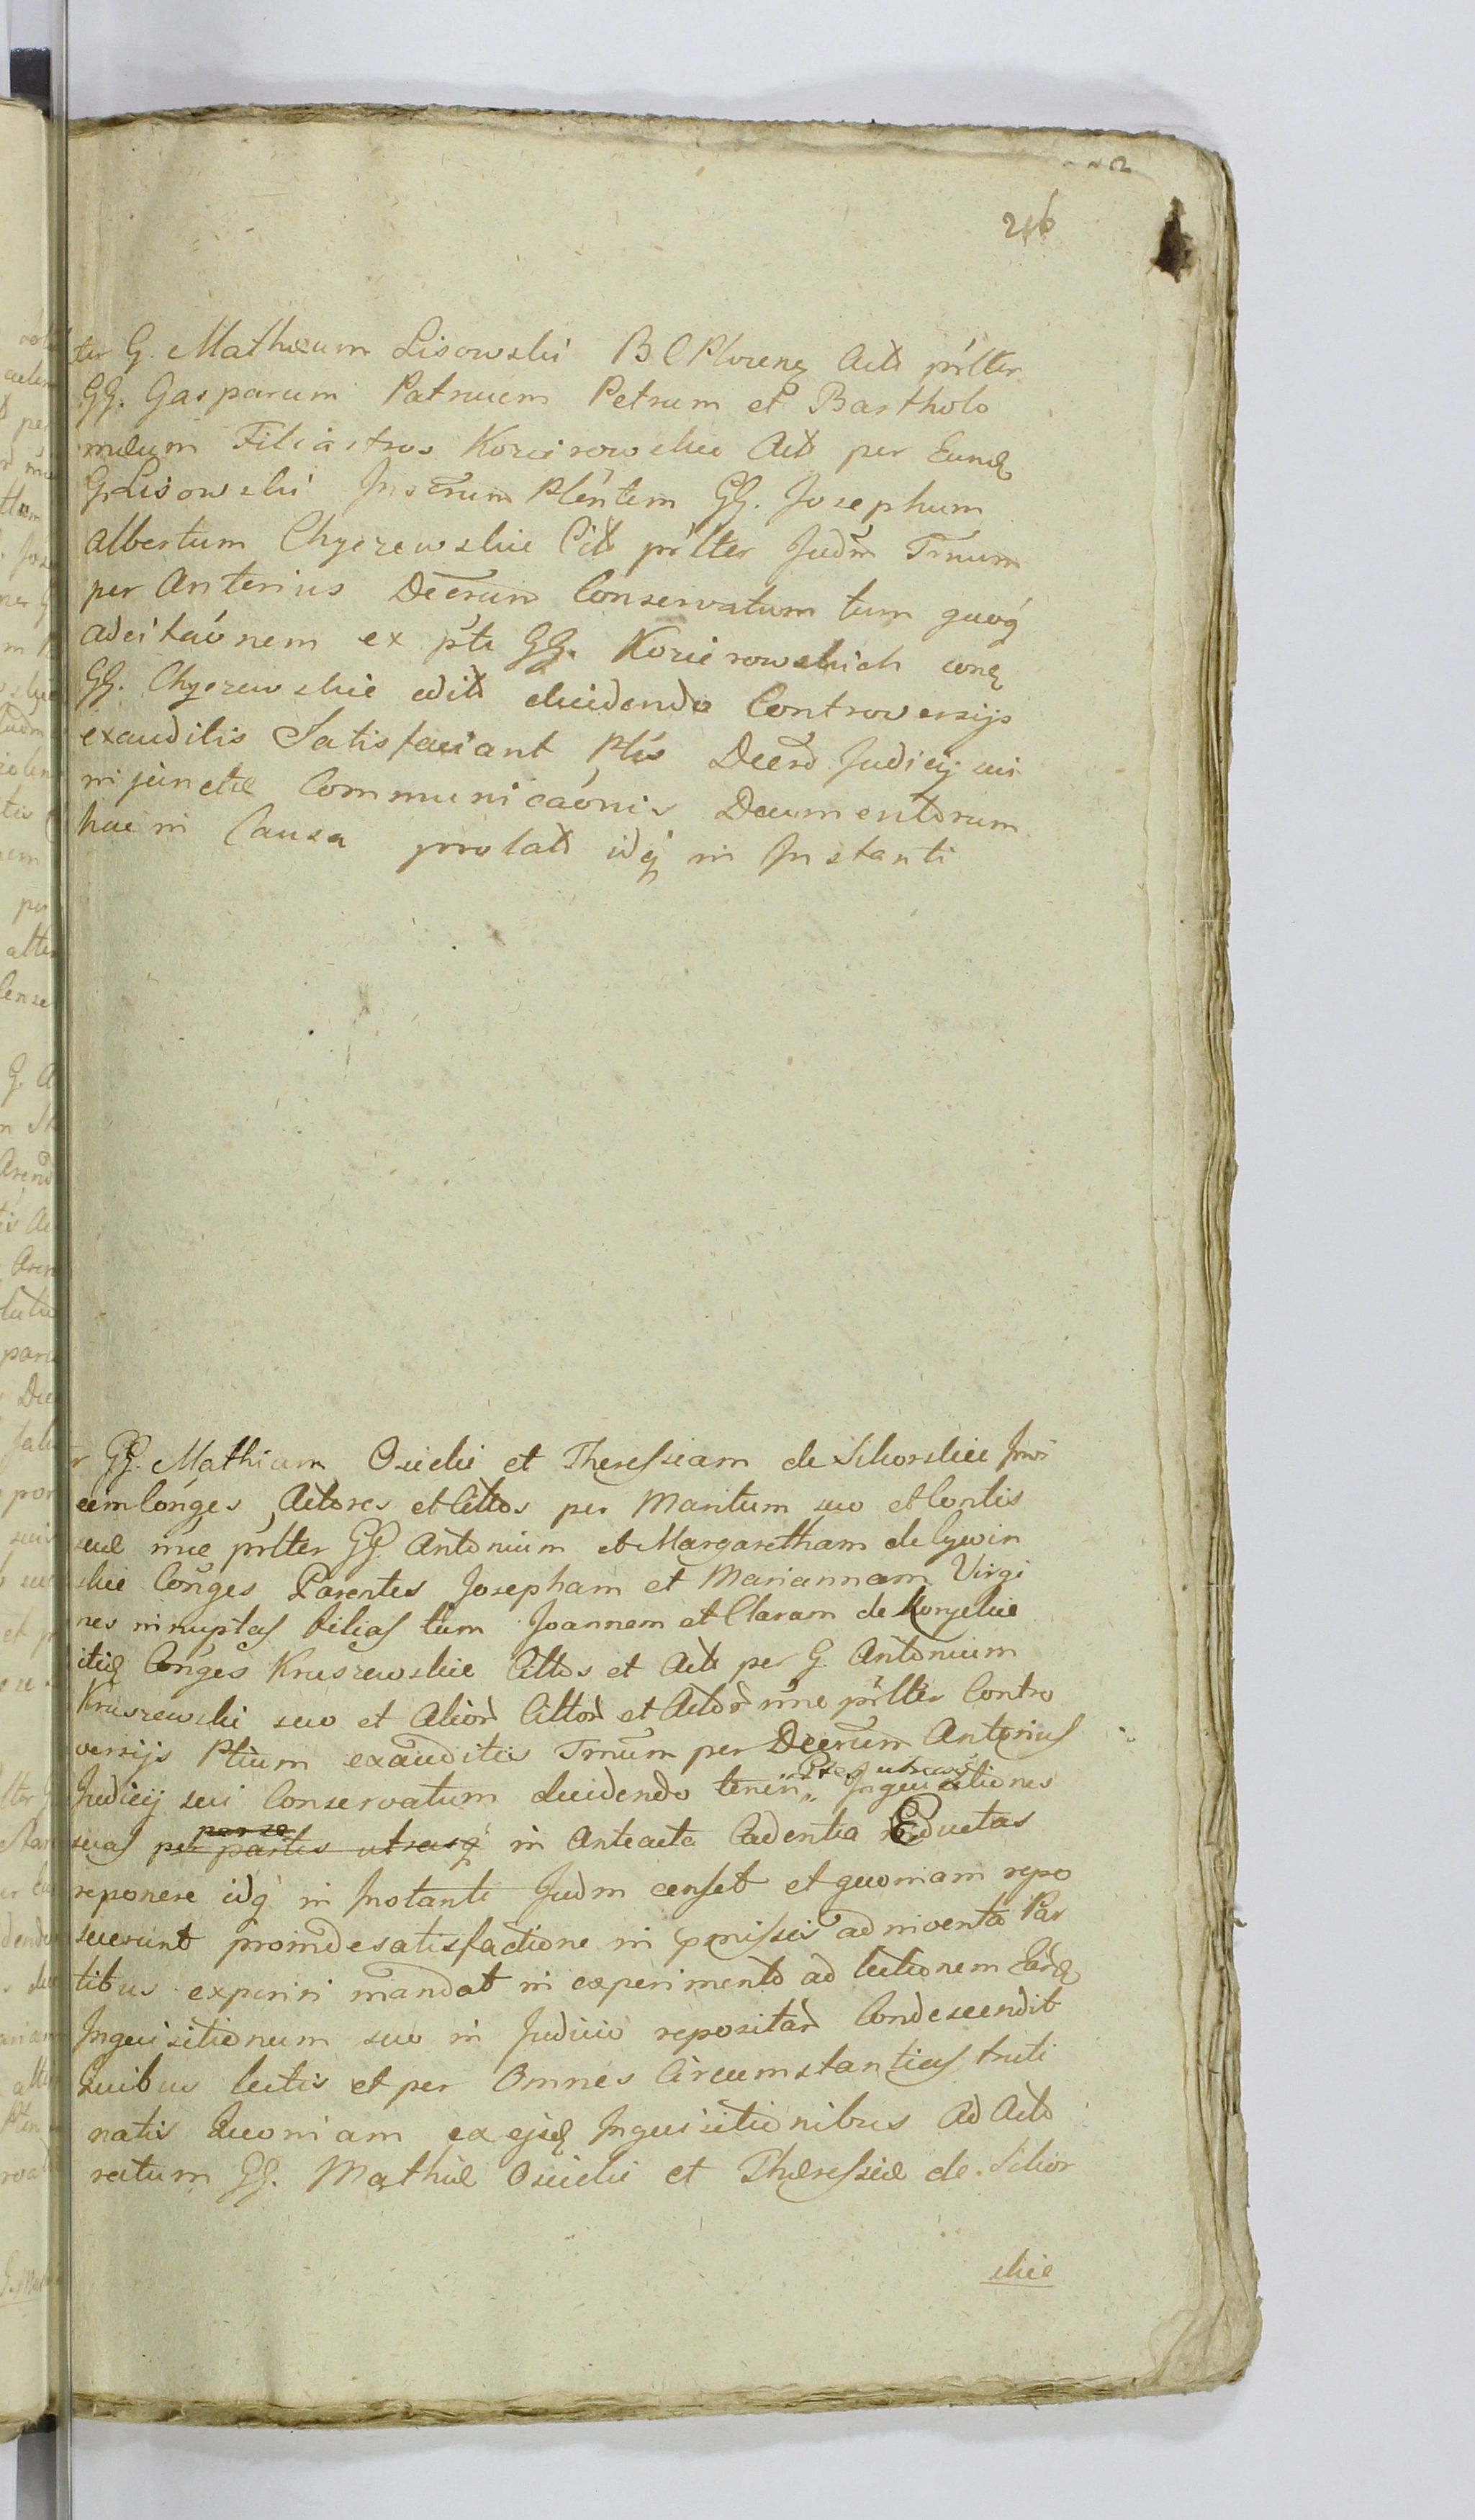 246
ter G. Mathæum Lisowski B C Plocenẽ Act prltter
GG. Gasparum Patruem Petrum et Bartholo
mæum Filiastros Kozierowskie Act per Eund
G Lisowski Instrum Plentem GG. Josephum
Albertum Chyczewskie Citt prltter Judm Trnum
per Anterius Decrum Conservatum tum quoq
adcitaónem ex pte GG. Kozierowskich conq
GG. Chyczewskie edit decidendo Controversijs
exauditis Satisfaciant Ptes Decrò Judicij sui
injunctæ Communicaónis Documentorum
hac in Causa prolat idq in Instanti
r GG. Mathiam Osiecki et Theressiam de Sikorskie Invi
cem Cónges Actores et Cittos per Maritum suo et Contis
suæ nne prltter GG. Antonium et Margaretham de Cywin
skie Cónges Parentes Josepham et Mariannam Virgi
nes innuptas Filias tum Joannem et Claram de Konyckie
itid Cónges Kruszewskie Cittos et Act per G. Antonium
Kruszewski suo et Alior Cittor et Actor nne prltter Contro
versijs Ptium exauditis Trnum per Decrum Anterius
Judicij sui Conservatum decidendo Ptes utrasq Inquisitiones
suas per se per partes utrasq in Anteacta Cadentia Eductas
reponere idq in Instanti Judm censet et quoniam repo
suerunt proinde satisfactione in pmissis adinventa Par
tibus experiri mandat in experimento ad lectionem Eard
Inquisitionum suo in Judicio repositar Condescendit
Quibus lectis et per Omnes Circumstantias truti
natis Quoniam ex ejsd Inquisitionibus Ad Acto
ratum GG. Mathiæ Osiecki et Thæressiæ de Sikor
skie